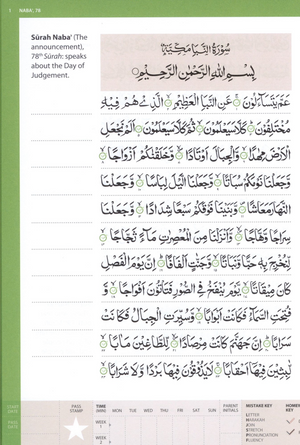 1 NABA', 78
Sūrah Naba' (The
announcement),
78th Sūrah: speaks
about the Day of
Judgement.
سُورَةُ النَّبَإِ مَكِّيَّةٌ
بِسْمِ اللهِ الرَّحْمٰنِ الرَّحِيْمِ
عَمَّ يَتَسَآءَلُوْنَ ۝ عَنِ النَّبَاِ الْعَظِيْمِ ۝ الَّذِيْ هُمْ فِيْهِ
مُخْتَلِفُوْنَ ۝ كَلَّا سَيَعْلَمُوْنَ ۝ ثُمَّ كَلَّا سَيَعْلَمُوْنَ ۝ اَلَمْ نَجْعَلِ
الْاَرْضَ مِهٰدًا ۝ وَّالْجِبَالَ اَوْتَادًا ۝ وَّخَلَقْنٰكُمْ اَزْوَاجًا ۝
وَّجَعَلْنَا نَوْمَكُمْ سُبَاتًا ۝ وَّجَعَلْنَا الَّيْلَ لِبَاسًا ۝ وَّجَعَلْنَا
النَّهَارَ مَعَاشًا ۝ وَّبَنَيْنَا فَوْقَكُمْ سَبْعًا شِدَادًا ۝ وَّجَعَلْنَا
سِرَاجًا وَّهَّاجًا ۝ وَّاَنْزَلْنَا مِنَ الْمُعْصِرٰتِ مَآءً ثَجَّاجًا ۝
لِّنُخْرِجَ بِهٖ حَبًّا وَّنَبَاتًا ۝ وَّجَنّٰتٍ اَلْفَافًا ۝ اِنَّ يَوْمَ الْفَصْلِ
كَانَ مِيْقَاتًا ۝ يَّوْمَ يُنْفَخُ فِي الصُّوْرِ فَتَاْتُوْنَ اَفْوَاجًا ۝ وَّ
فُتِحَتِ السَّمَآءُ فَكَانَتْ اَبْوَابًا ۝ وَّسُيِّرَتِ الْجِبَالُ فَكَانَتْ
سَرَابًا ۝ اِنَّ جَهَنَّمَ كَانَتْ مِرْصَادًا ۝ لِّلطَّاغِيْنَ مَاٰبًا ۝
لّٰبِثِيْنَ فِيْهَآ اَحْقَابًا ۝ لَا يَذُوْقُوْنَ فِيْهَا بَرْدًا وَّلَا شَرَابًا ۝
START DATE PASS STAMP TIME (MIN) MON TUE WED THU FRI SAT SUN PARENT INITIALS MISTAKE KEY
WEEK 1
LETTER
HARAKAH
JOIN
STRETCH
PRONUNCIATION
FLUENCY
WEEK 2